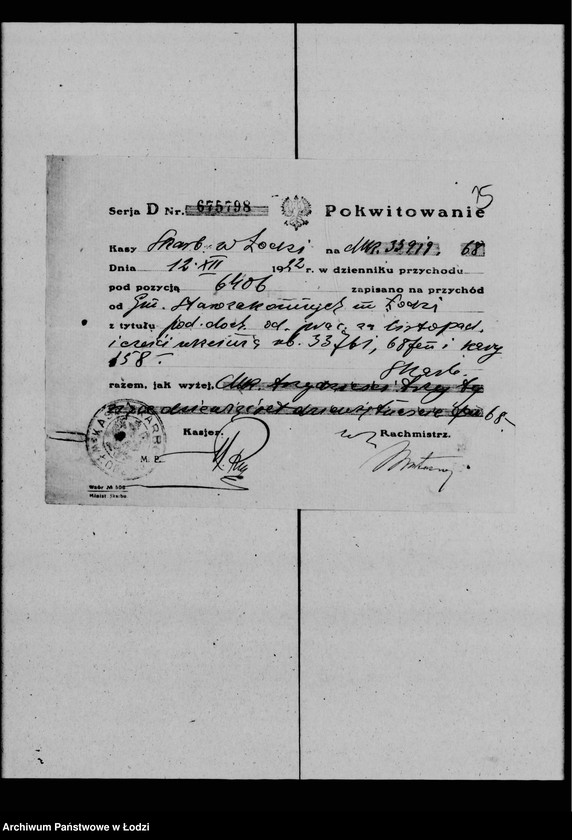 75
Serja D Nr. 675798 Pokwitowanie
Kasy Skarb. w Łodzi na Mkp. 33919. 68
Dnia 12. XII 1922 r. w dzienniku przychodu
pod pozycją 6406 zapisano na przychód
od Gm. Starozakonnych m. Łodzi
z tytułu pod. doch. od. prac. za listopad.
i części 33761, 68 fen i kary
158.-
Skarb.
razem, jak wyżej, Mkp. trzydzieści trzy ty
dziewięćset dziewiętnaście 68.-
Kasjer. Rachmistrz.
KASA SKARB
M. P.
Wzór № 506
Minist Skarbu
Archiwum Państwowe w Łodzi